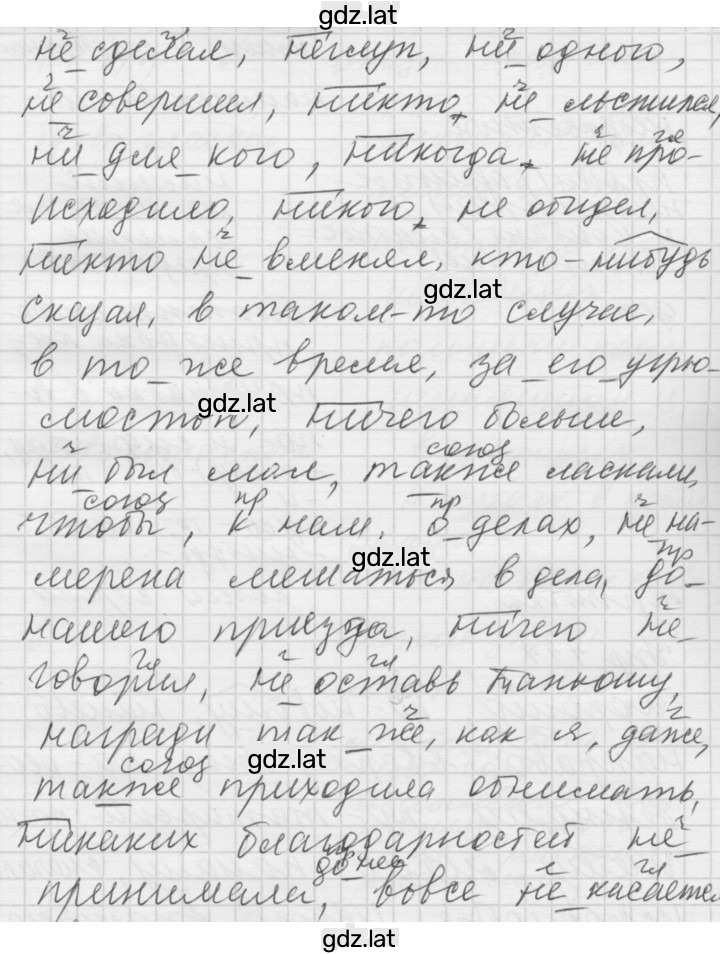 gdz.lat
не сделал, неглуп, ни одного,
не совершил, никто, не льстился,
ни для кого, никогда, не про-
исходило, никого, не обидел,
никто не вменял, кто-нибудь
gdz.lat
сказал, в таком-то случае,
в то же время, за его угрю-
gdz.lat
мостью, ничего больше,
союз
ни был мал, также ласкали,
союз пр пр
чтобы, к нам, о делах, не на-
gdz.lat
пр
мерена мешаться в дела, до
нашего приезда, ничего не
говорил, не оставь Танюшу,
награди так же, как я, даже,
союз gdz.lat
также приходила обнимать,
никаких благодарностей не
принимала, вовсе не касается
gdz.lat